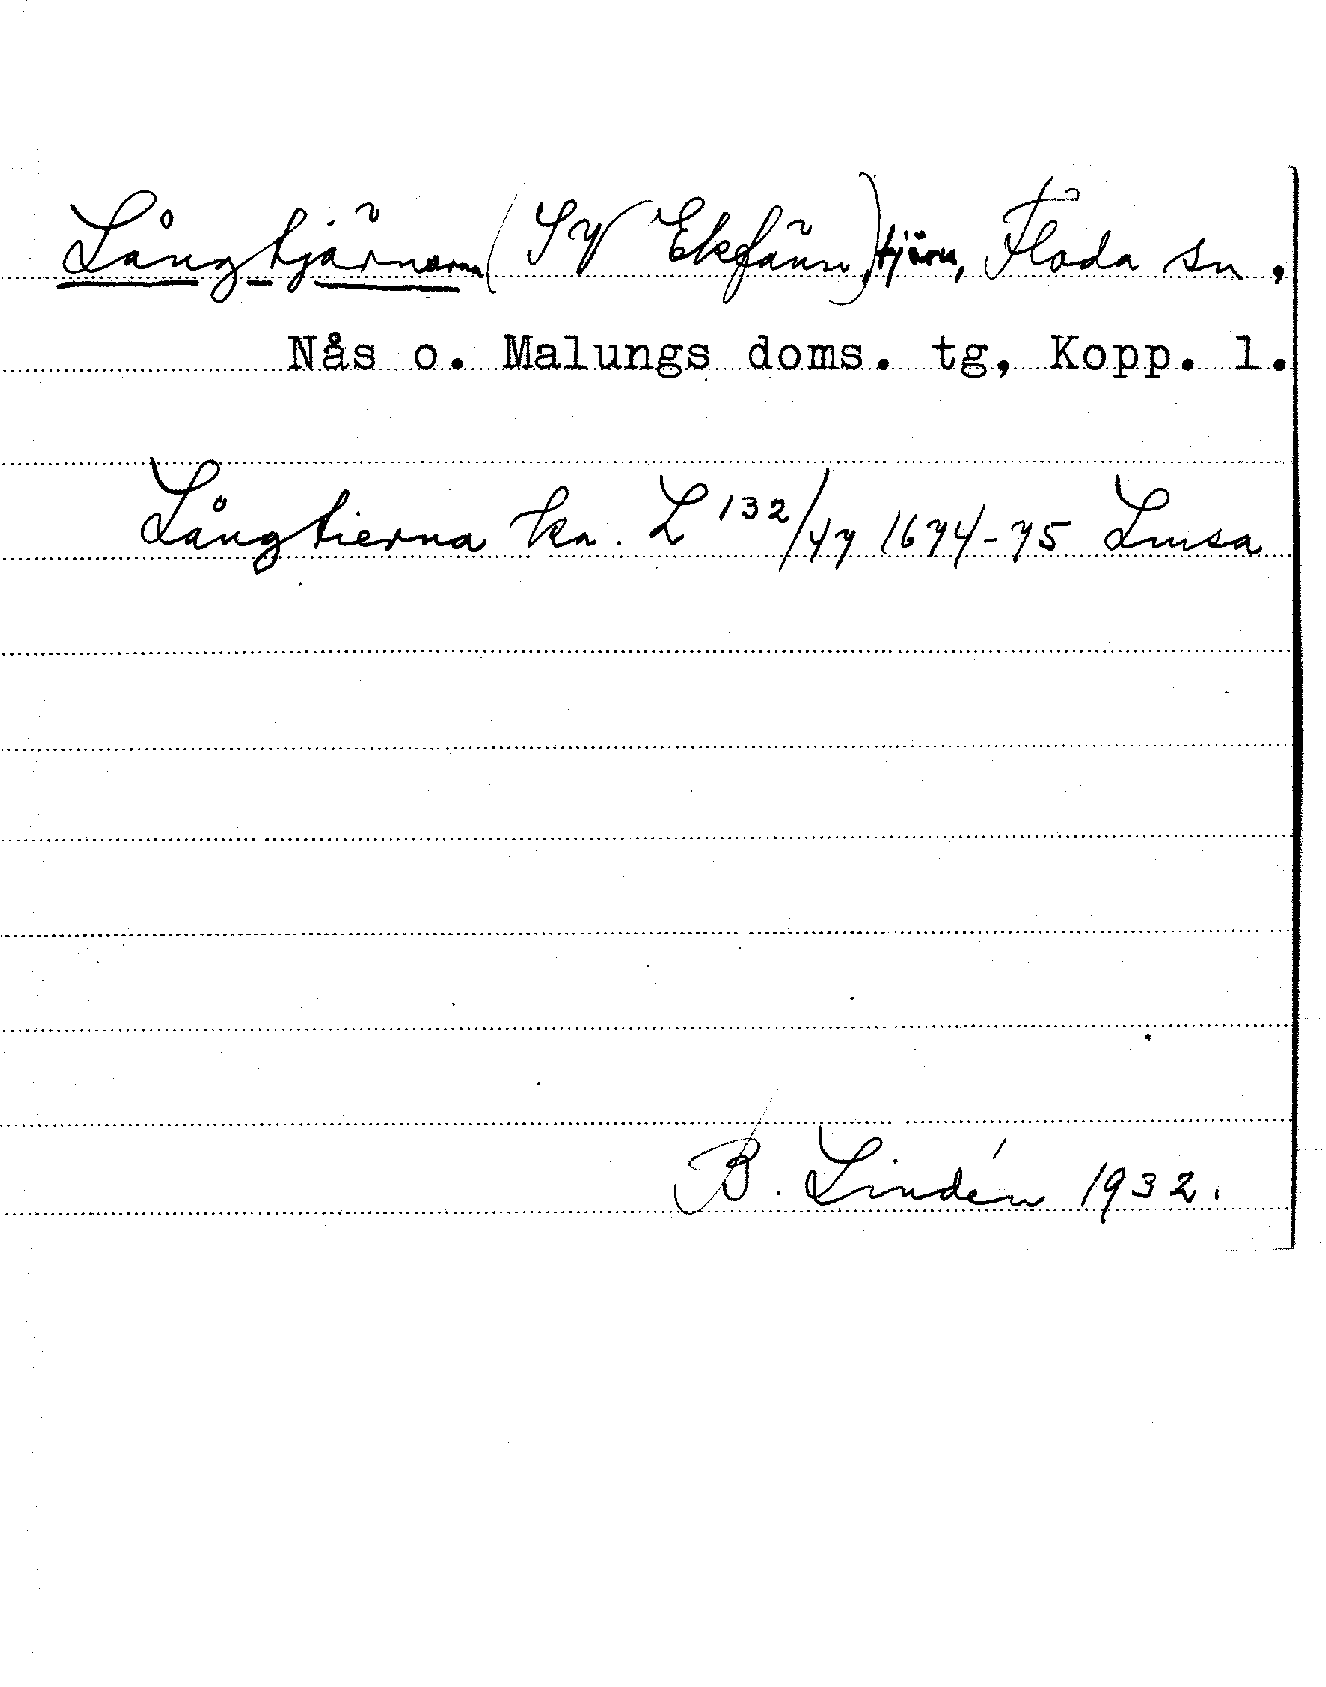 Långtjärnarna (SV Ekfänn) tjärn, Floda sn,
Nås o. Malungs doms. tg, Kopp. l.
Långtierna ka. L 132/47 1674-75 Lmsa
B. Lindén 1932.